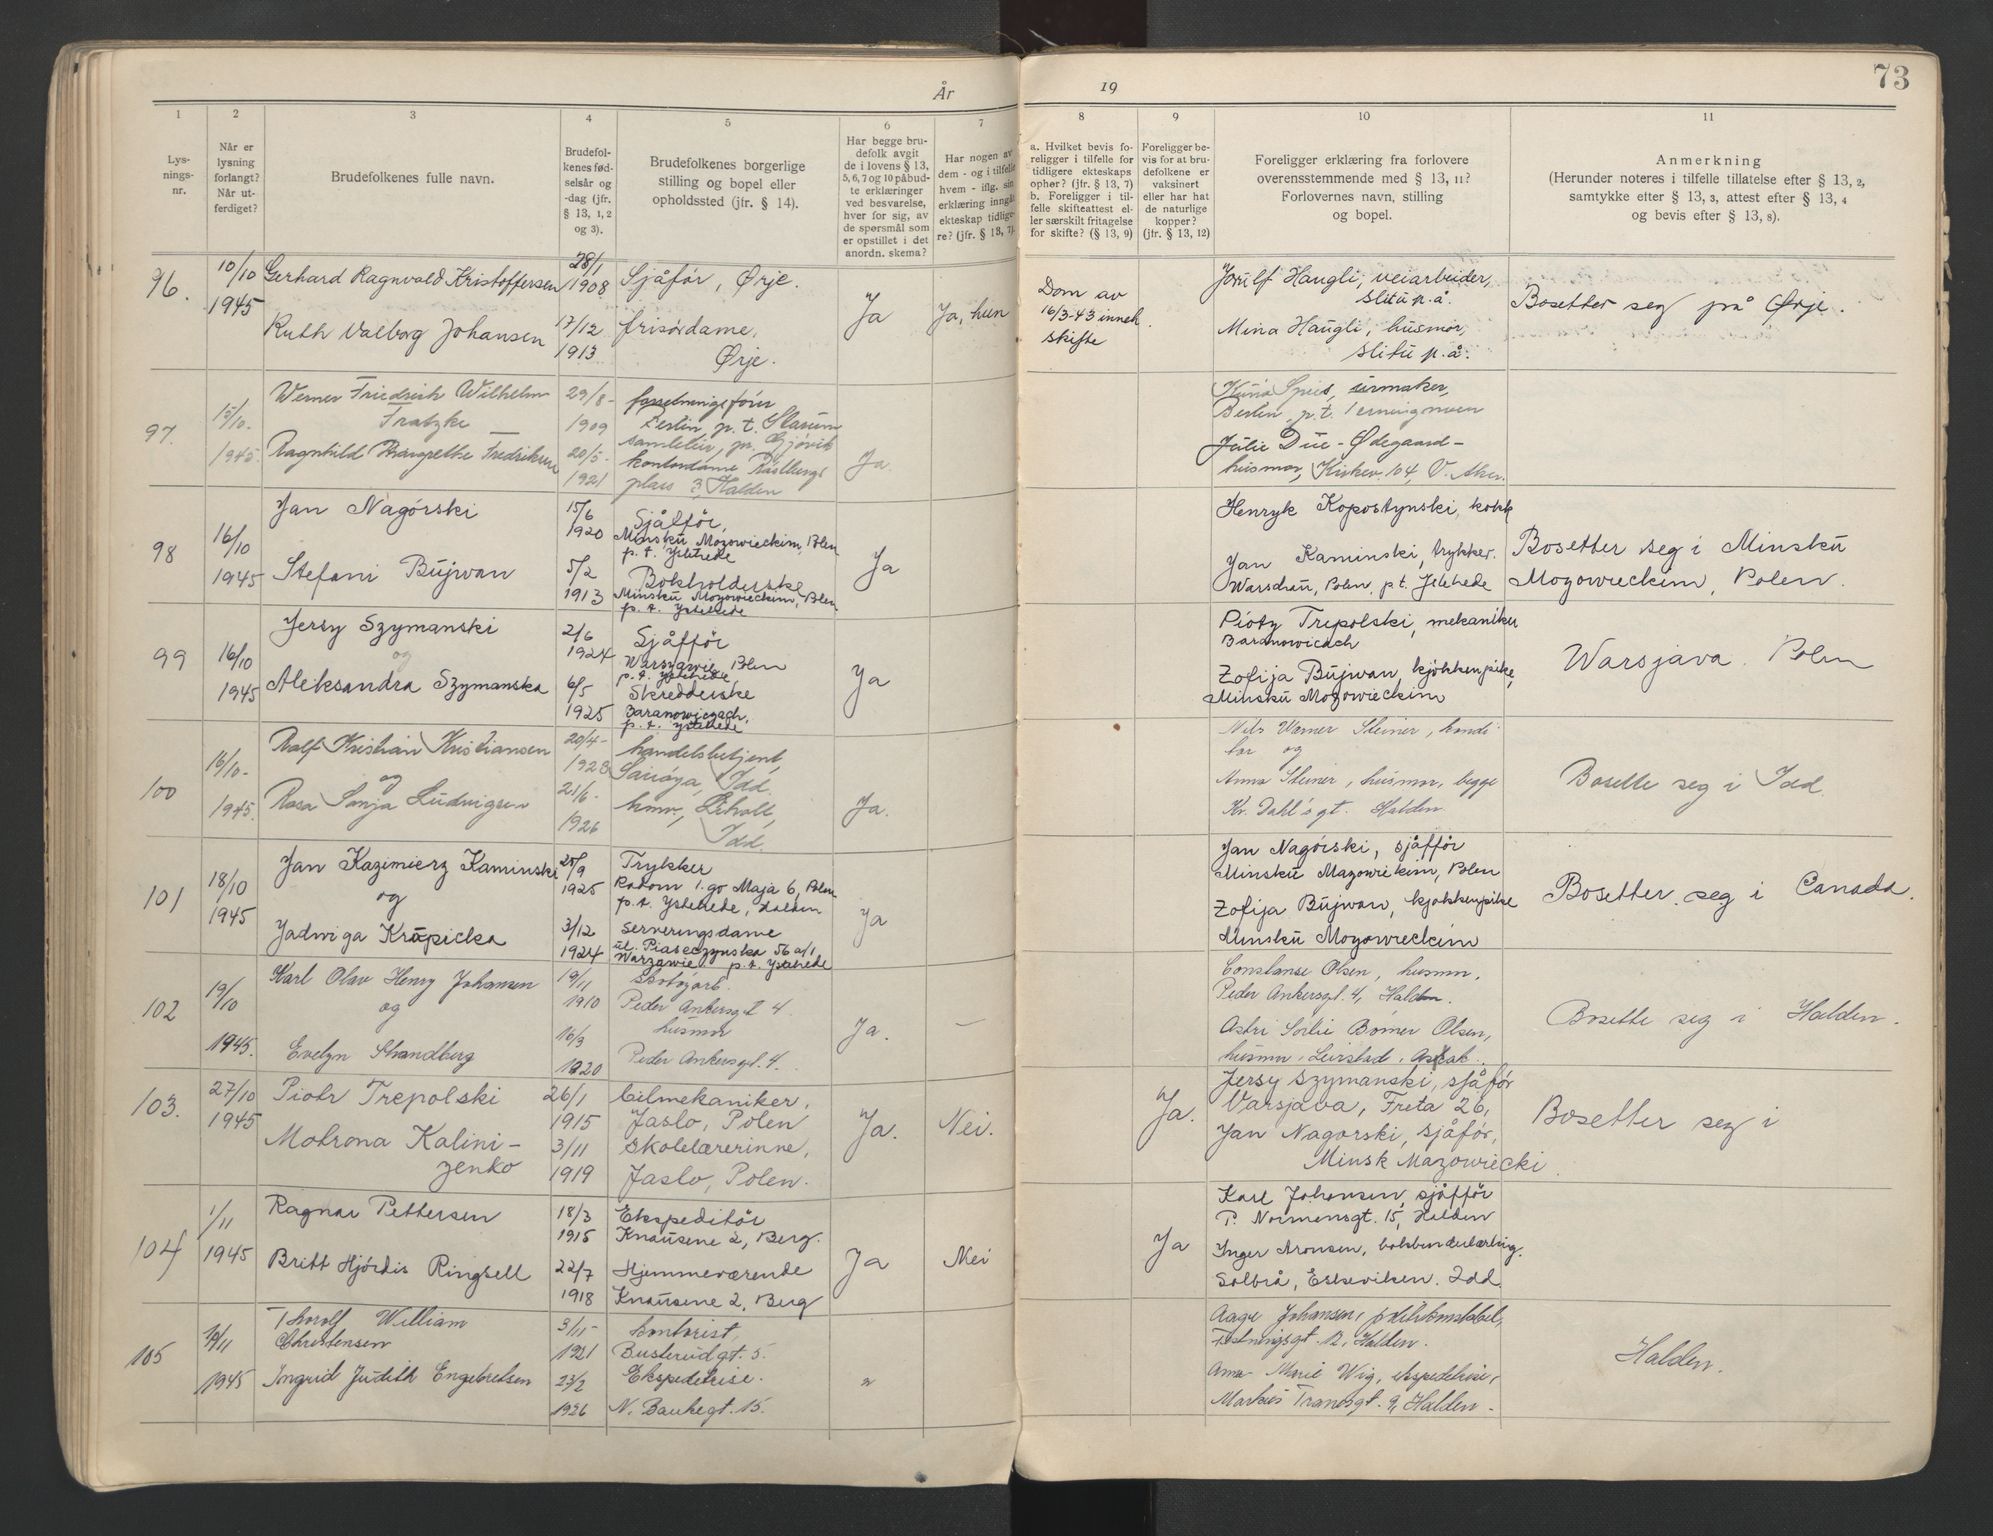 År
19
73
1
2
3
4
5
6
7
8
9
10
11
Lys-
nings-
nr.
Når er
lysning
forlangt?
Når ut-
ferdiget?
Brudefolkenes fulle navn.
Brudefol-
kenes fød-
selsår og
-dag (jfr.
§ 13, 1, 2
og 3).
Brudefolkenes borgerlige
stilling og bopel eller
opholdssted (jtr. § 14).
Har begge bru-
defolk avgit
de i lovens § 13,
5, 6, 7 og 10 påbud-
te erklæringer
ved besvarelse,
hver for sig, av
de spørsmål som
er opstillet i det
anordn. skema?
Har nogen av
dem - og i tilfelle
hvem - iflg. sin
erklæring inngåt
ekteskap tidlige-
re? (jfr. § 13, 7).
a. Hvilket bevis fo-
religger i tilfelle for
tidligere ekteskaps
ophør? (jfr. § 13, 7)
b. Foreligger i til-
felle skifteattest el-
ler særskilt fritagelse
for skifte? (§ 13, 9)
Foreligger be-
vis for at bru-
defolkene er
vaksinert
eller har hat
de naturlige
kopper?
(jfr. § 13, 12)
Foreligger erklæring fra forlovere
overensstemmende med § 13, 11?
Forlovernes navn, stilling
og bopel.
Anmerkning
(Herunder noteres i tilfelle tillatelse efter § 13, 2,
samtykke efter § 13, 3, attest efter § 13, 4
og bevis efter § 13, 8).
96.
10/10
1945
Gerhard Ragnvald Kristoffersen
28/1
1908
Sjåfór, Ørje.
Ruth Valborg Johansen
17/12
1913
frisórdame,
Ørje.
Ja
Ja, hun
Dom av
16/3-43 inneh.
skifte
Jorulf Haugli, veiarbeider,
Slitu p.å.
Mina Haugli, husmor,
Slitu p.å.
Bosetter seg på Ørje.
97.
15/10.
1945.
Werner Friedrich Wilhelm
Fratzke
29/8-
1909
Berlin p.t.
samleleir, pr. Gjøvik
Ragnhild Margrethe Fredriksen
20/5-
1921
kontordame
plass 3, Halden
Ja.
Spies, urmaker,
Berlin, p.t.
Julie Due-Ødegaard-
husmor, Kirkev. 104, V. Aker.
98
16/10
1945
Jan Nagórski
15/6
1920
Sjåfför,
Minsku Mozowieckim, Polen
p.t. Ystehede
Stefani Bujwan
5/2
1913
Bokholderske
Minsku Mozowieckim, Polen
p.t. Ystehede
Ja
Henryk Kopostynski, kokk
Jan Kaminski, trykker.
Warschau, Polen, pt. Ystehede
Bosetter seg i Minsku
Mozowieckim, Polen.
99
16/10
1945
Jersy Szymanski
og
2/6
1924
Sjåfför
Warszawie, Polen
p.t. Ystehede
Aleksandra Szymanska
6/5
1925
Skredderske
Baranowiczach,
p.t. Ystehede
Ja
Piotz Trepolski, mekaniker
Baranowicach
Zofija Bujwan, kjökkenpike,
Minsku Mozowieckim
Warsjava. Polen
100
16/10-
1945.
Rolf Kristian Kristiansen
og
20/4-
1923
handelsbetjent,
Idd.
Rosa Sonja Ludvigsen
21/6-
1926
hmv,
Idd.
Ja.
Nils Werner Steiner, kondi
tor og
Anna Steiner, husmor, begge
Kr. Dahl's gt. Halden
Bosette seg i Idd.
101
18/10
1945
Jan Kazimierz Kaminski
og
25/9
1925
Trykker
Radom 1.go Maja 6, Polen
p.t. Ystehede, Halden
Jadwiga Krupicka
3/12
1924
Serveringsdame
ul. Piaseczynska 56 a/1
Warzawie p.t. Ystehede
Ja
Jan Nagórski, sjåffór
Minsku Mazowiekim, Polen
Zofija Bujwan, kjökkenpike
Minsku Mozowieckim
Bosetter seg i Canada.
102
19/10
1945.
Karl Olav Henry Johansen
og
19/11
1910
Skotójarb.
Peder Ankersgt 4.
Evelyn Strandberg
16/3
1920
husmor
Peder Ankersgt. 4.
Ja.
—
Constanse Olsen, husmor,
Peder Ankersgt. 4, Halden.
Astri Sofie Bómer Olsen,
husmor, Leirstad, Askak.
Bosette seg i Halden.
103.
27/10
1945
Piotr Trepolski
26/1
1915
bilmekaniker,
Jaslo, Polen
Motrona Kalini-
zenko
3/11
1919
skolelærerinne,
Jaslo, Polen.
Ja.
Nei.
Ja.
Jersy Szymanski, sjåfór
Varsjava, Freta 26,
Jan Nagorski, sjåfór,
Minsk Mazowiecki.
Bosetter seg i
104
1/11
1945
Ragnar Pettersen
18/3
1915
Ekspeditör
Knausene 2, Berg.
Britt Hjördis Ringsell
22/7
1918
Hjemmeværende
Knausene 2, Berg
Ja
Nei
Ja
Karl Johansen, sjåfför
P. Normensgt. 15, Halden
Inger Aronsen, bokbinderlærling.
Solbrå, Eskeviken. Idd.
105
/11
1945
Thorolf William
Christensen
3/11-
1921
kontorist,
Busterudgt. 5.
Ingrid Judith Engebretsen
23/2
1926
Ekspeditrise.
N. Bankegt. 15.
"
Aage Johansen, politikonstabel,
Festningsgt. 12, Halden.
Anna Marie Wig, ekspeditrise,
Markus Tranesgt. 9, Halden.
Halden.